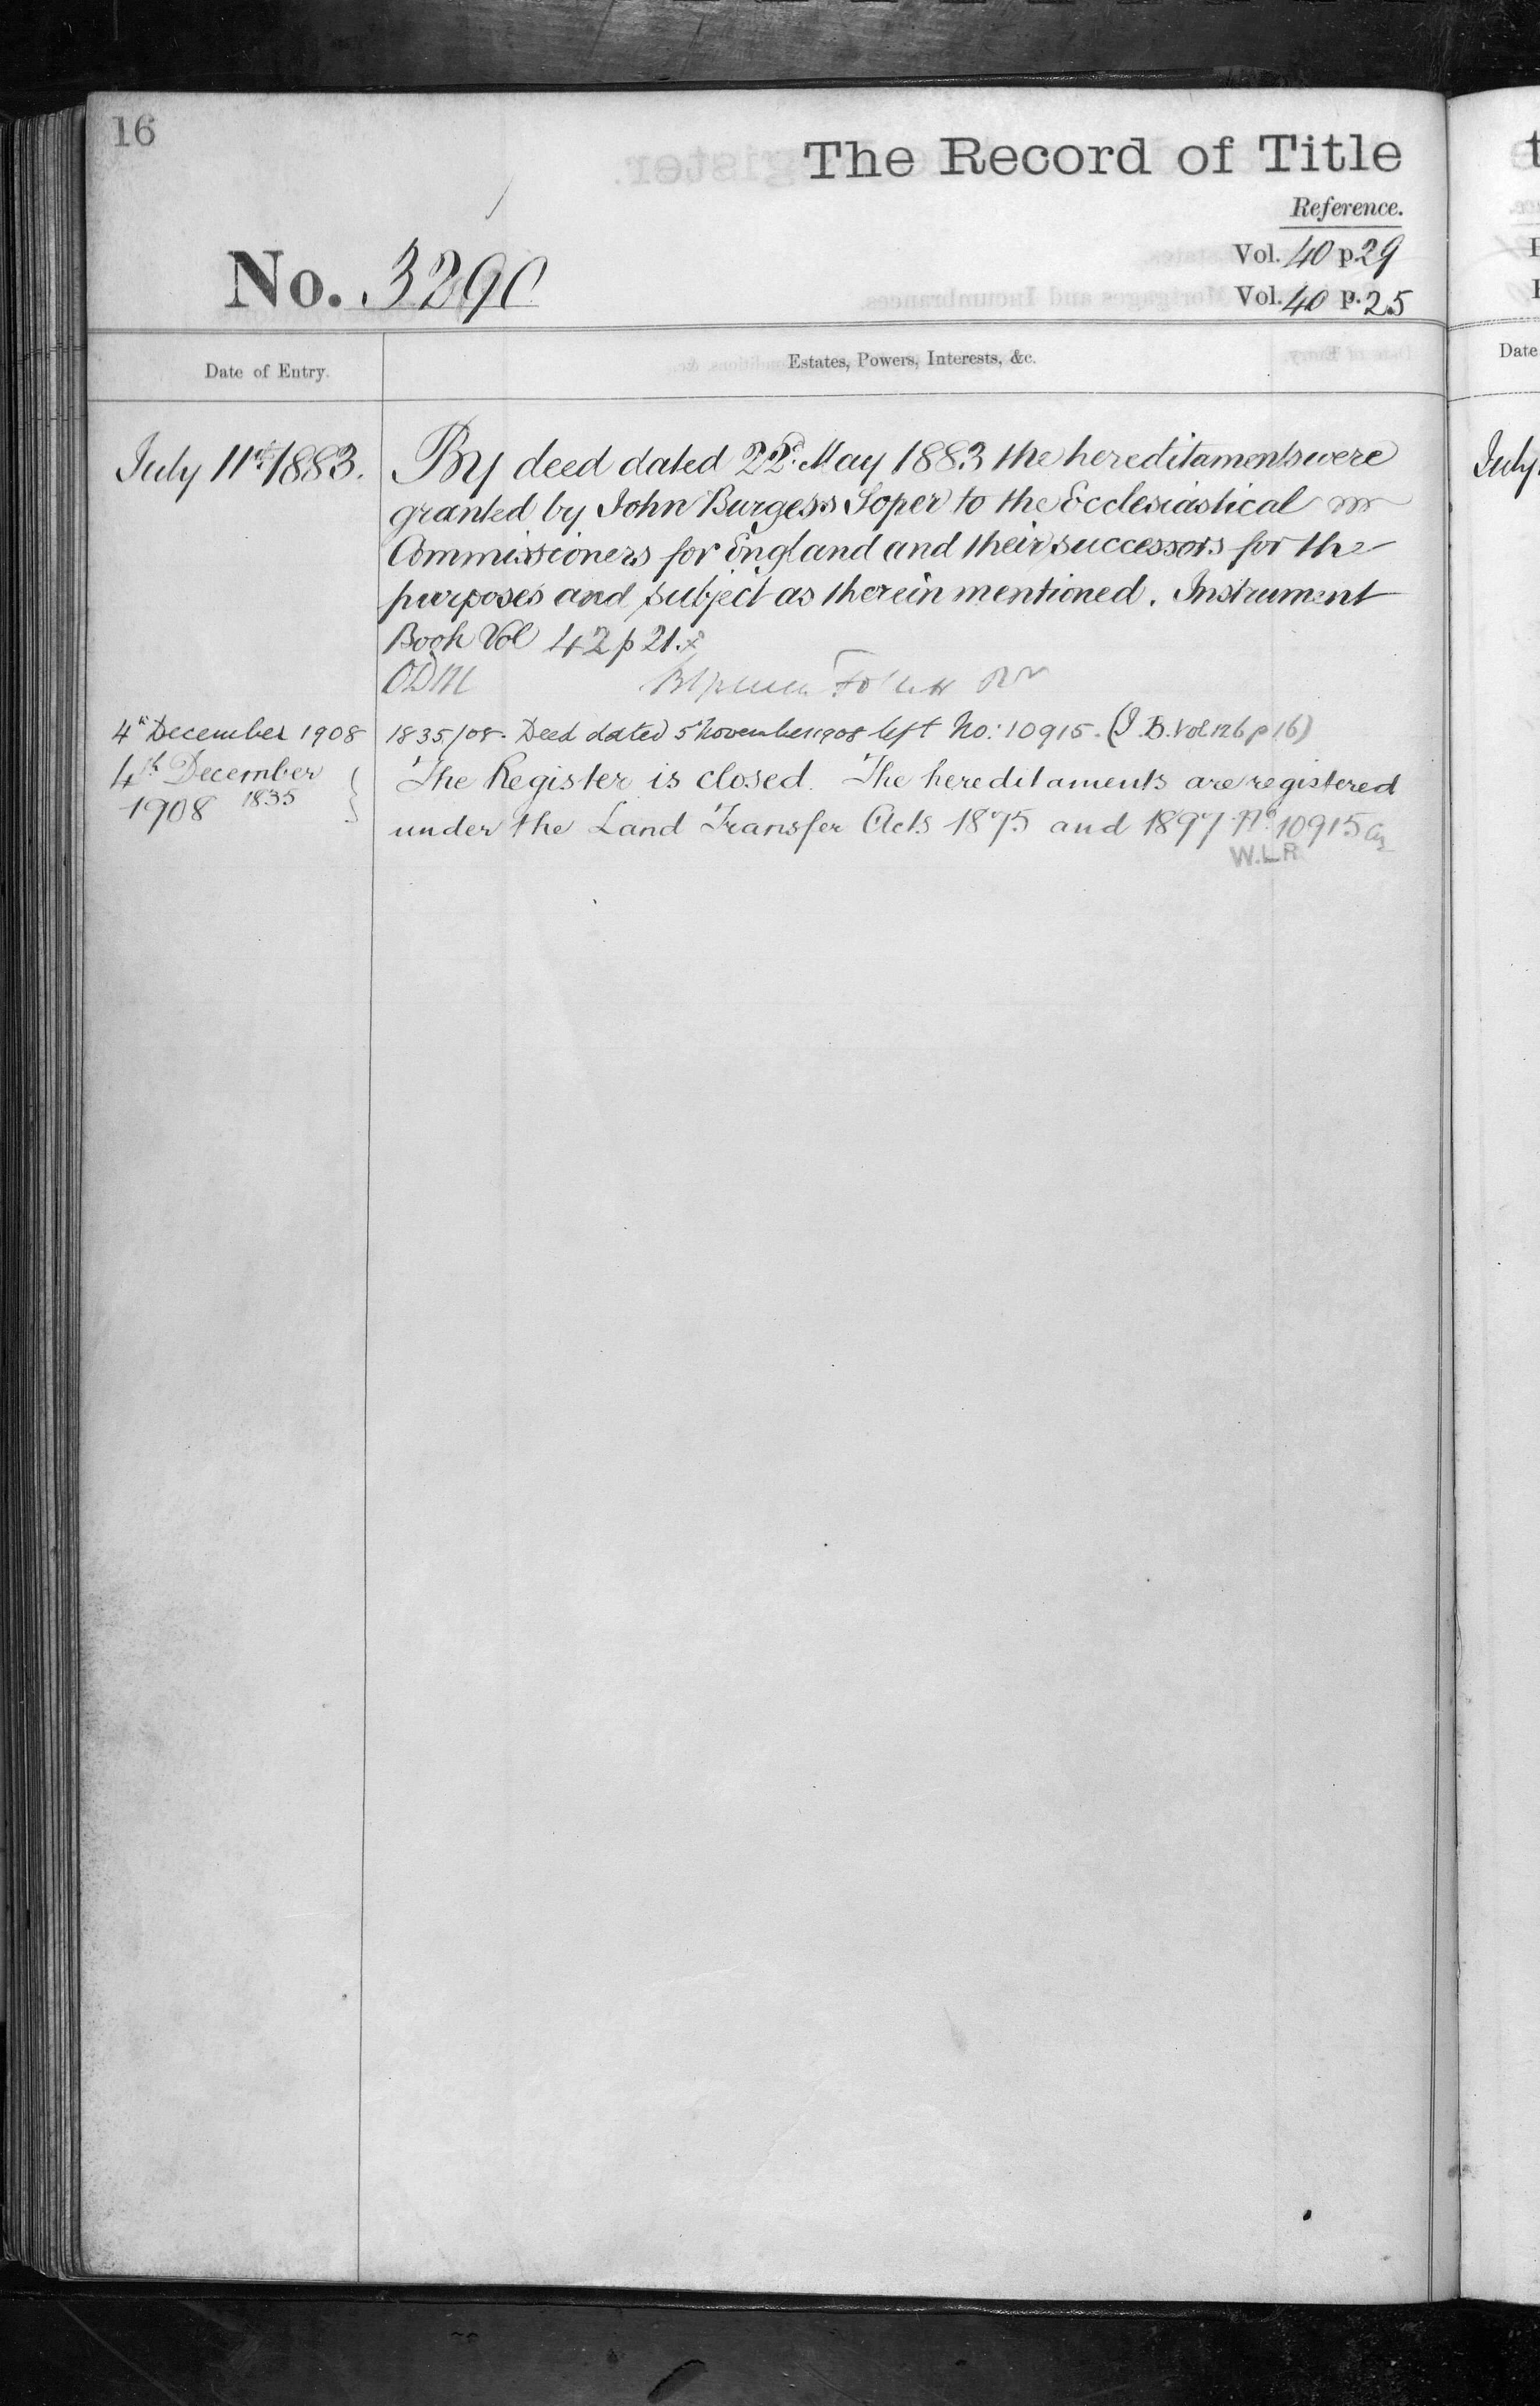 16
The Record of Title
Reference.
No. 3290
Vol. 40 p. 29
Vol. 40 p. 25
Date of Entry.
Estates, Powers, Interests, &c.
July 11th 1883.
By deed dated 22d. May 1883 the hereditaments were
granted by John Burgess Soper to the Ecclesiastical
Commissioners for England and their successors for the
purposes and subject as therein mentioned. Instrument
Book Vol 42 p 21.
ODM
4th December 1908
1835/08. Deed dated 5 November 1908 left No: 10915. (I.B. Vol 126 p 16)
4th December
1908 1835
The Register is closed. The hereditaments are registered
under the Land Transfer Acts 1875 and 1897 No. 10915
W.L.R.
Date
July